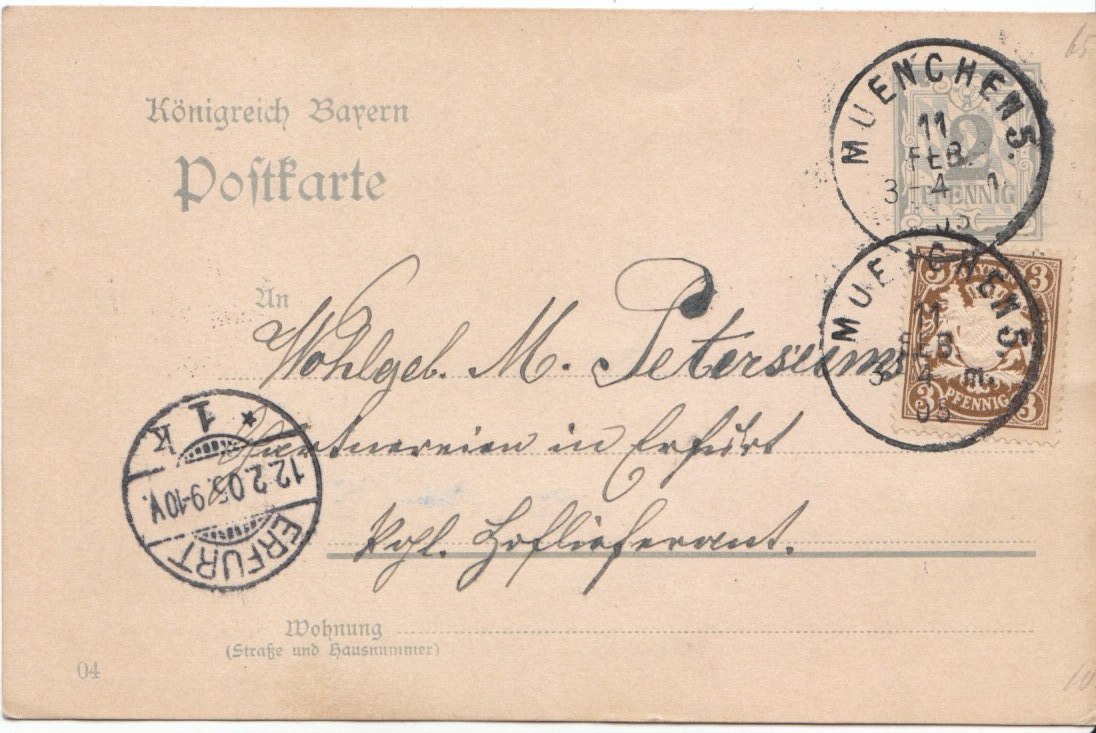 65
Königreich Bayern
Postkarte
2
PFENNIG
MUENCHEN 5.
11
FEB.
3-4 N
05
MUENCHEN 5.
11
FEB.
3-4 N
05
3 3
BAYERN
PFENNIG
3 3
An
Wohlgeb. M. Peterseims
Gärtnereien in Erfurt
Kgl. Hoflieferant.
ERFURT
12.2.05.9-10V.
* 1
K
Wohnung
(Straße und Hausnummer)
04